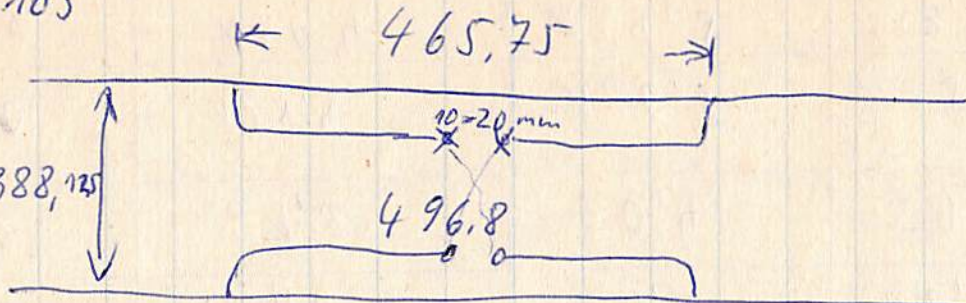 105
465,75
10-20 mm
388,125
496.8